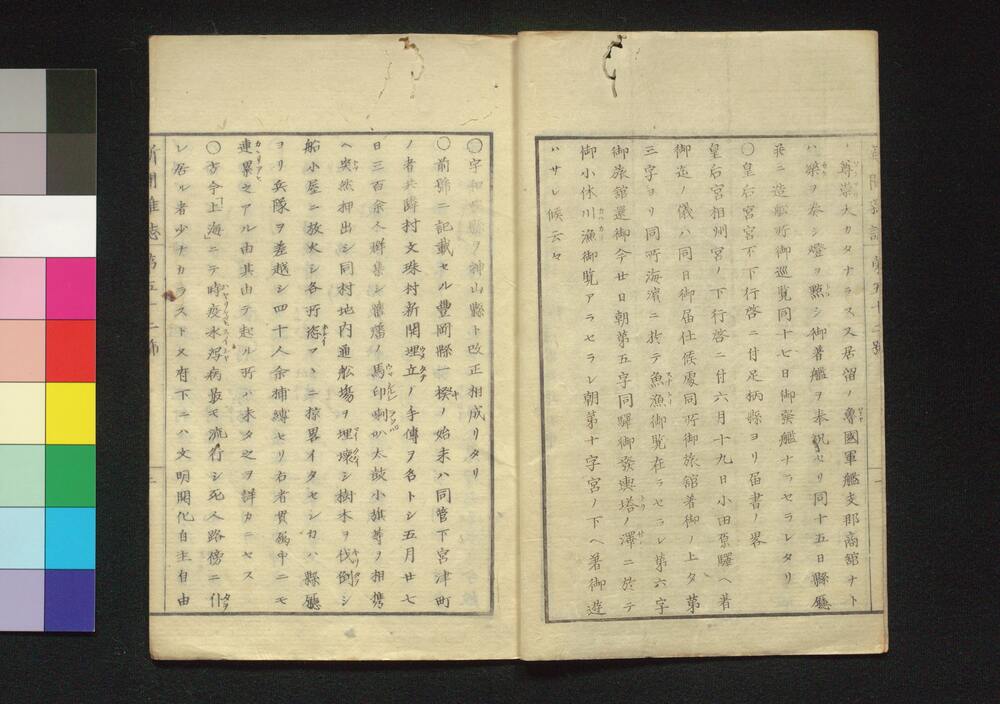 ノ尊崇大カタナラスス居留ノ魯國軍艦支那商舘ナト
ハ樂ヲ奏シ燈ヲ點シ御著艦ヲ来祝セリ同十五日縣廳
并ニ造舩所御巡覧同十七日御發艦ナラセラレタリ
〇皇后宮宮ノ下行啓ニ付足柄縣ヨリ届書ノ畧
皇后宮相州宮ノ下行啓ニ付六月十九日小田原驛ヘ著
御迄ノ儀ハ同日御届仕候處同所御旅舘著御ノ上夕第
三字ヨリ同所海濱ニ於テ魚漁御覧在ラセラレ第六字
御旅舘還御今廿日朝第五字同驛御發輿塔ノ澤ニ於テ
御小休川漁御覧アラセラレ朝第十字宮ノ下ヘ著御遊
ハサレ候云々
〇宇和島縣ヲ神山縣ト改正相成リタリ
〇前號ニ記載セル豊岡縣一揆ノ始末ハ同管下宮津町
ノ者共隣村文珠村新開埋立ノ手傳ヲ名トシ五月廿七
日三百余人群集シ舊藩ノ馬印喇叭太鼓小旗等ヲ相携
ヘ突然押出シ同村地内通舩場ヲ埋壊シ樹木ヲ伐倒シ
船小屋ニ放火シ各所恣マヽニ掠畧イタセシカハ縣廳
ヨリ兵隊ヲ差越シ四十人余捕縛セリ右者貫属中ニモ
連累之アル由其由テ起ル所ハ未タ之ヲ詳カニセス
〇方今「上海」ニテ時疫水瀉病最モ流行シ死人路傍ニ仆
レ居ル者少ナカラスト又府下ニハ文明開化自主自由
新聞雑誌 第五十二號